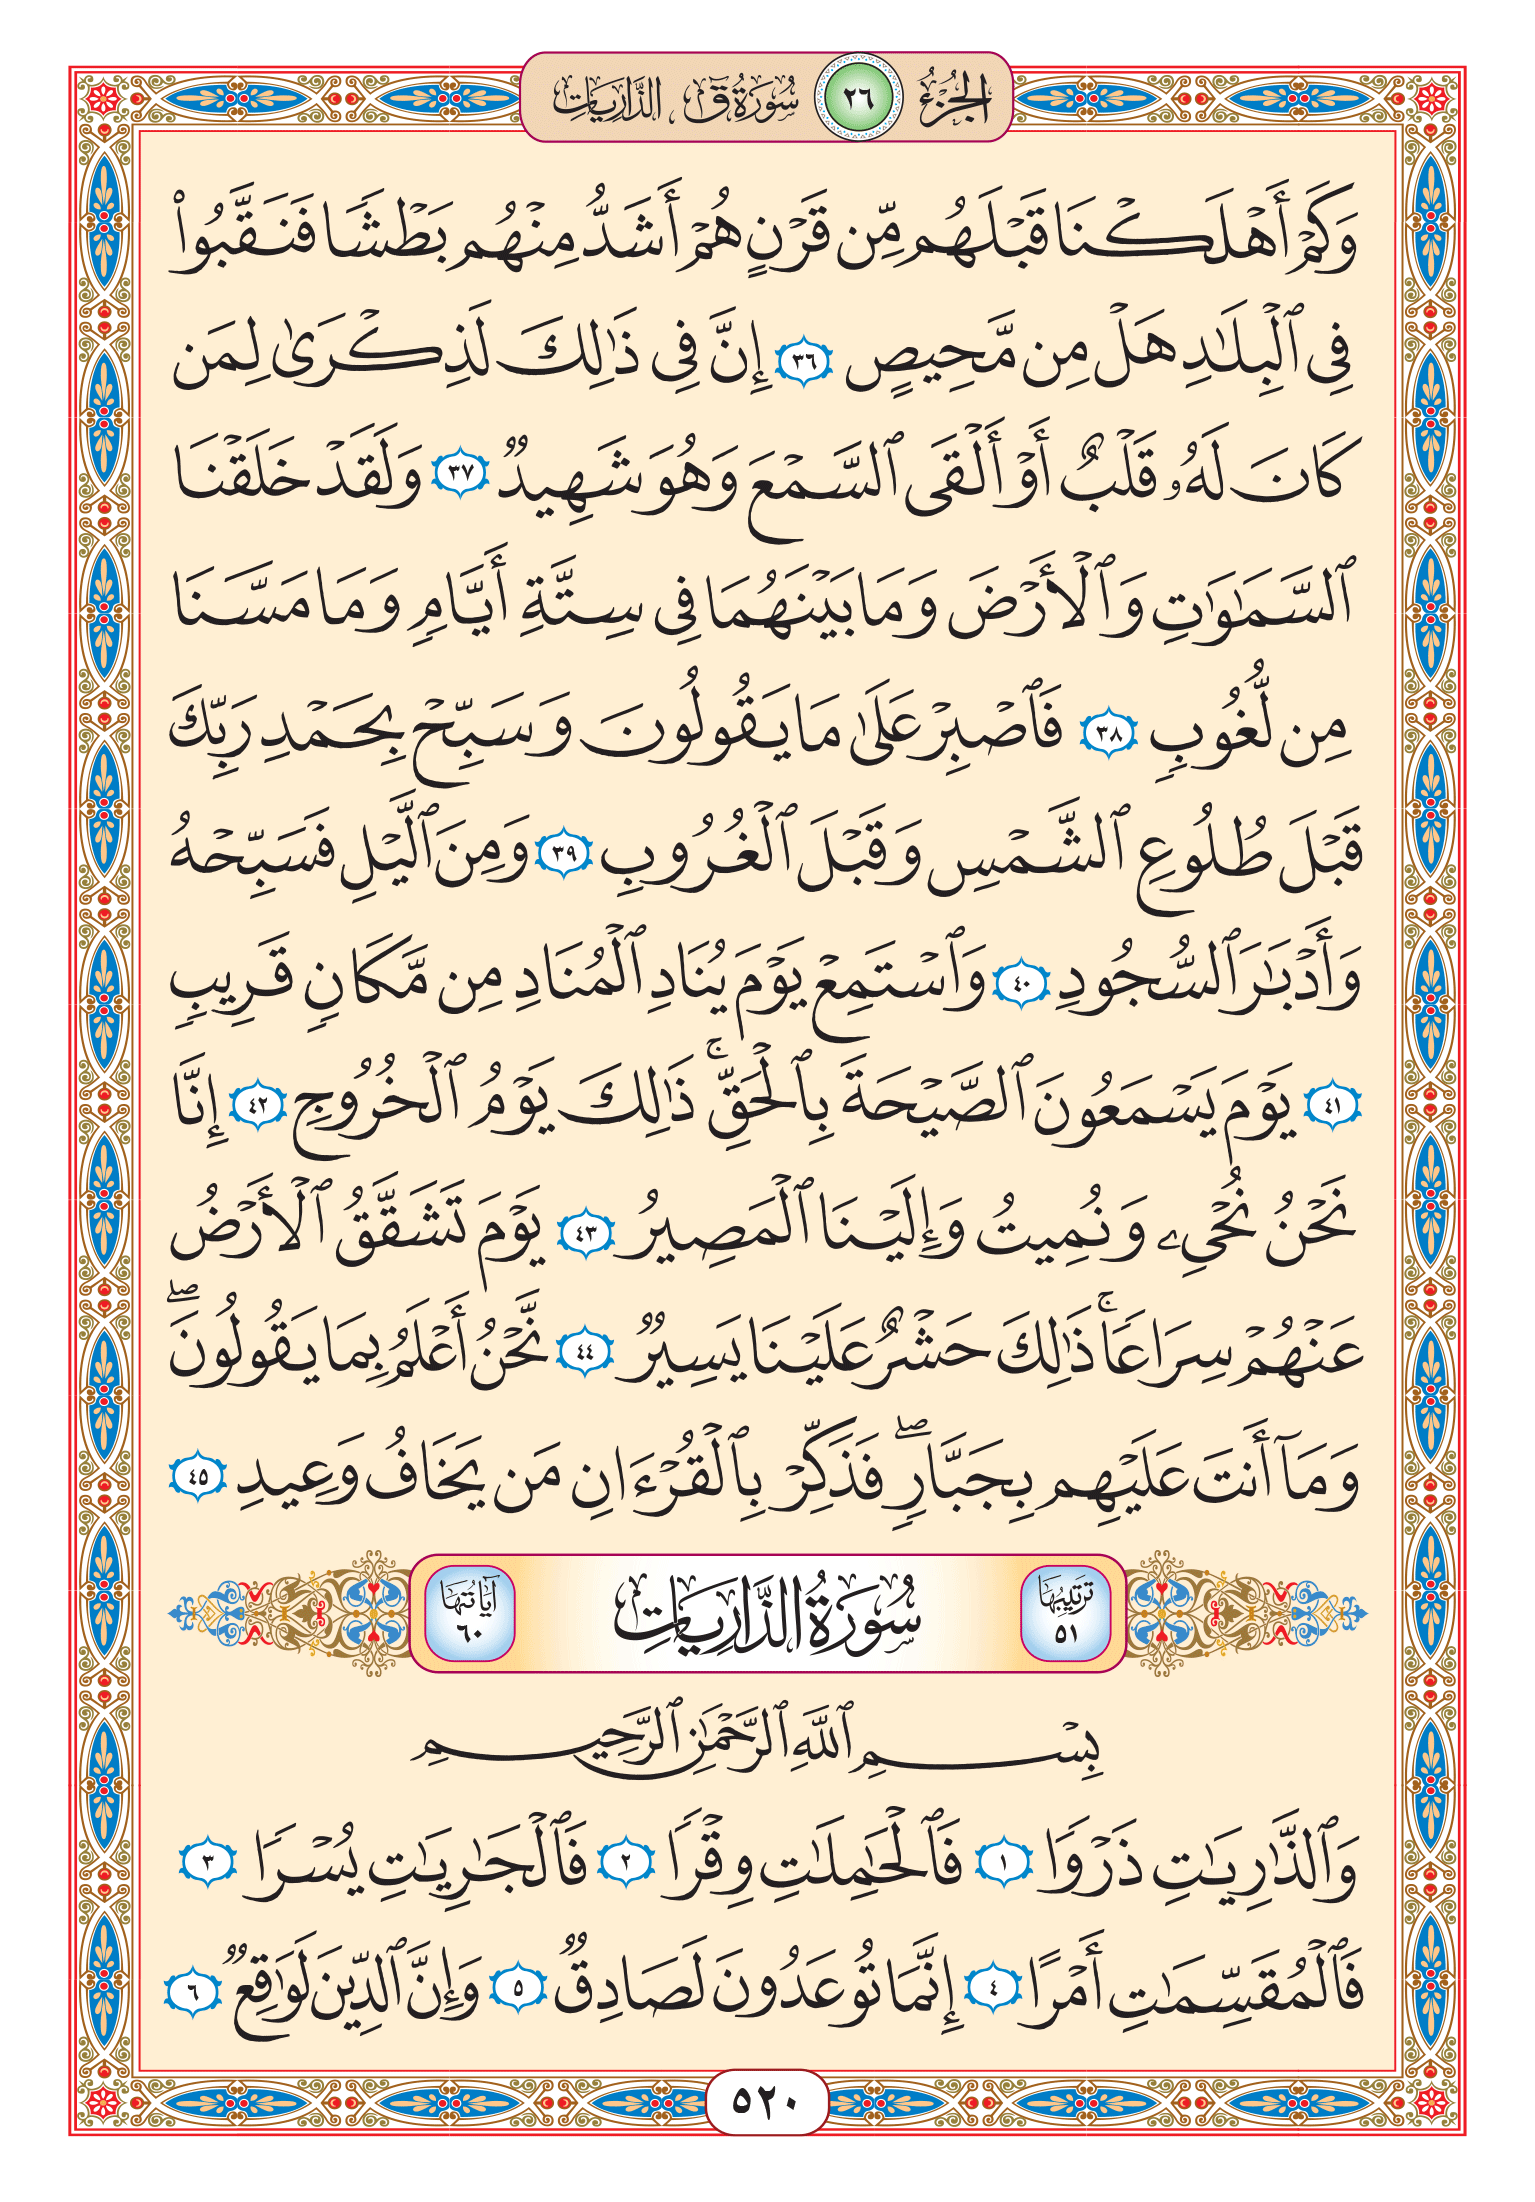 الجزء ٢٦ سورة ق، الذاريات
وَكَمْ أَهْلَكْنَا قَبْلَهُم مِّن قَرْنٍ هُمْ أَشَدُّ مِنْهُم بَطْشًا فَنَقَّبُوا۟
فِى ٱلْبِلَـٰدِ هَلْ مِن مَّحِيصٍ ٣٦ إِنَّ فِى ذَٰلِكَ لَذِكْرَىٰ لِمَن
كَانَ لَهُۥ قَلْبٌ أَوْ أَلْقَى ٱلسَّمْعَ وَهُوَ شَهِيدٌ ٣٧ وَلَقَدْ خَلَقْنَا
ٱلسَّمَـٰوَٰتِ وَٱلْأَرْضَ وَمَا بَيْنَهُمَا فِى سِتَّةِ أَيَّامٍ وَمَا مَسَّنَا
مِن لُّغُوبٍ ٣٨ فَٱصْبِرْ عَلَىٰ مَا يَقُولُونَ وَسَبِّحْ بِحَمْدِ رَبِّكَ
قَبْلَ طُلُوعِ ٱلشَّمْسِ وَقَبْلَ ٱلْغُرُوبِ ٣٩ وَمِنَ ٱلَّيْلِ فَسَبِّحْهُ
وَأَدْبَـٰرَ ٱلسُّجُودِ ٤٠ وَٱسْتَمِعْ يَوْمَ يُنَادِ ٱلْمُنَادِ مِن مَّكَانٍ قَرِيبٍ
٤١ يَوْمَ يَسْمَعُونَ ٱلصَّيْحَةَ بِٱلْحَقِّ ۚ ذَٰلِكَ يَوْمُ ٱلْخُرُوجِ ٤٢ إِنَّا
نَحْنُ نُحْىِۦ وَنُمِيتُ وَإِلَيْنَا ٱلْمَصِيرُ ٤٣ يَوْمَ تَشَقَّقُ ٱلْأَرْضُ
عَنْهُمْ سِرَاعًا ۚ ذَٰلِكَ حَشْرٌ عَلَيْنَا يَسِيرٌ ٤٤ نَّحْنُ أَعْلَمُ بِمَا يَقُولُونَ ۖ
وَمَآ أَنتَ عَلَيْهِم بِجَبَّارٍ ۖ فَذَكِّرْ بِٱلْقُرْءَانِ مَن يَخَافُ وَعِيدِ ٤٥
ترتيبها ٥١ سورة الذاريات آياتها ٦٠
بِسْمِ ٱللَّهِ ٱلرَّحْمَـٰنِ ٱلرَّحِيمِ
وَٱلذَّٰرِيَـٰتِ ذَرْوًا ١ فَٱلْحَـٰمِلَـٰتِ وِقْرًا ٢ فَٱلْجَـٰرِيَـٰتِ يُسْرًا ٣
فَٱلْمُقَسِّمَـٰتِ أَمْرًا ٤ إِنَّمَا تُوعَدُونَ لَصَادِقٌ ٥ وَإِنَّ ٱلدِّينَ لَوَٰقِعٌ ٦
٥٢٠